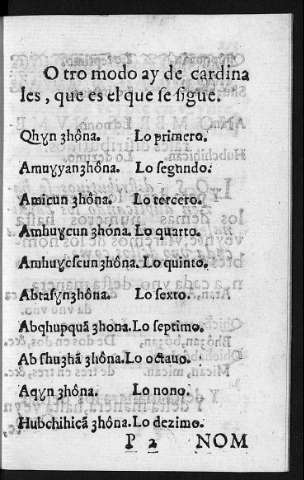 O tro modo ay de cardina
les, que es el que se sigue.
Qhyn ꝫhôna. Lo primero.
Amuyyanꝫhôna. Lo segundo.
Amicun ꝫhôna. Lo tercero.
Amhuycun ꝫhona. Lo quarto.
Amhuyescunꝫhôna. Lo quinto.
Abtasynꝫhôna. Lo sexto.
Abqhupquã ꝫhona. Lo septimo.
Ab shuꝫhã ꝫhôna. Lo octauo.
Aqyn ꝫhôna. Lo nono.
Hubchihicã ꝫhôna. Lo dezimo.
P 2 NOM